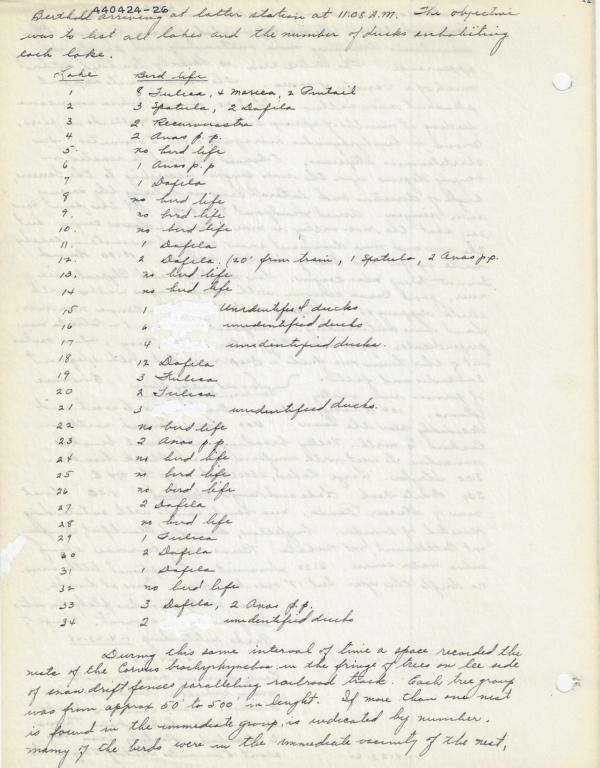 440424-26
Berthold arriving at latter station at 11:08 A.M. The objective
was to list all lakes and the number of ducks enhabiting
each lake.
Lake Bird life
1 8 Fulica, 4 Mareca, 2 Pintail
2 3 Spatula, 2 Dafila
3 2 Recurvirostra
4 2 Anas p.p.
5. no bird life
6 1 Anas p.p
7 1 Dafila
8 no bird life
9. no bird life
10. no bird life
11. 1 Dafila
12. 2 Dafila. (20' from train, 1 Spatula, 2 Anas p.p.
13, no bird life
14 no bird life
15 1 Unidentified ducks
16 6 unidentified ducks
17 4 unidentified ducks.
18 12 Dafila
19 3 Fulica
20 2 Fulica
21 3 unidentified ducks.
22 no bird life
23 2 Anas p.p.
24 no bird life
25 no bird life
26 no bird life
27 2 Dafila
28 no bird life
29 1 Fulica
30 2 Dafila
31 1 Dafila
32 no bird life
33 3 Dafila, 2 Anas p.p.
34 2 unidentified ducks
During this same interval of time a space recorded the
nests of the Corvus brachyrhynchos in the fringe of trees on lee side
of snow drift fences paralleling railroad track. Each tree group
was from approx 50' to 500' in lenght. If more than one nest
is found in the immediate group, is indicated by number.
many of the birds were in the immediate vacinity of the nest,